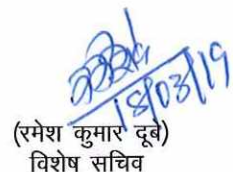 18/03/19
(रमेश कुमार दूबे)
विशेष सचिव